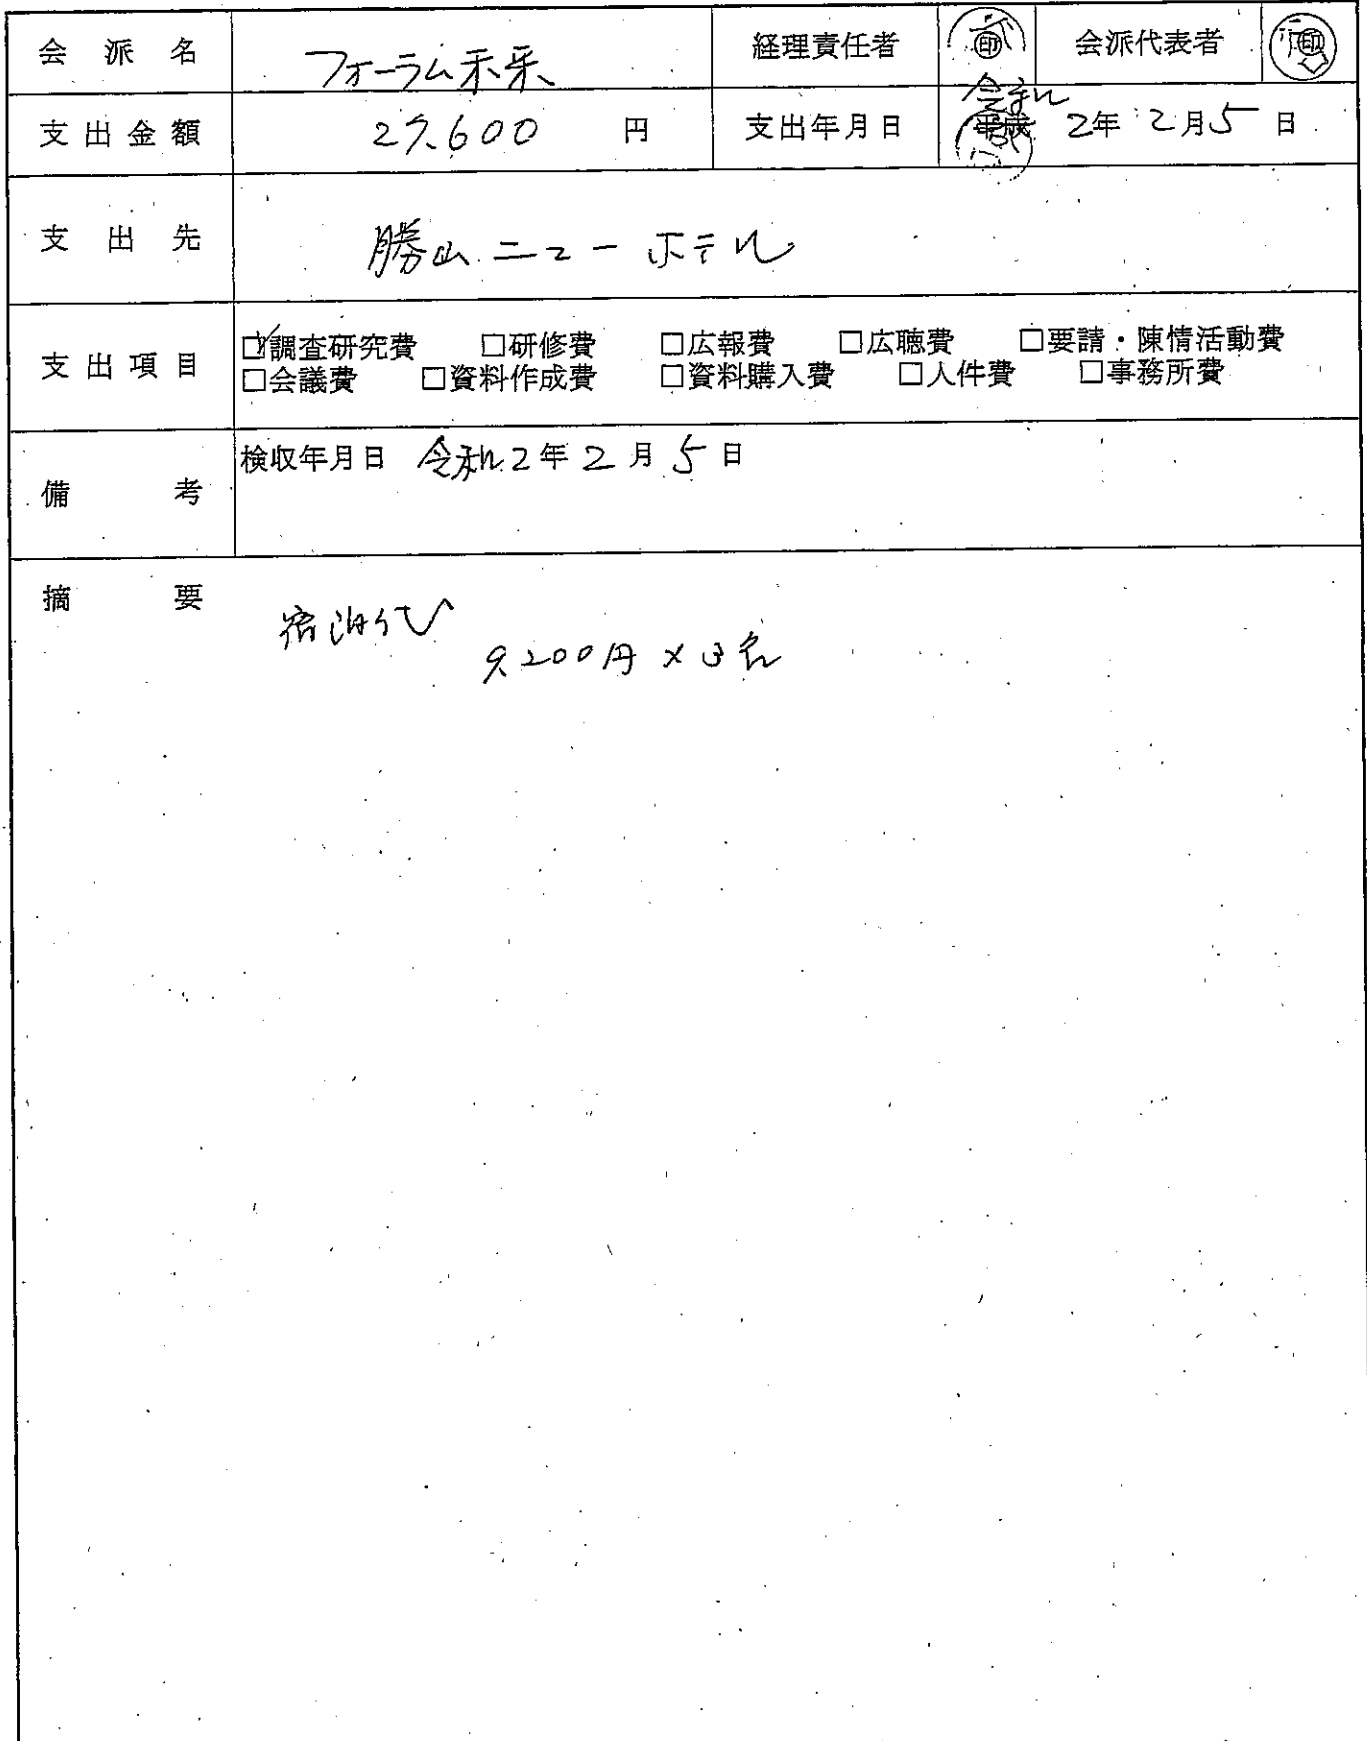 会派名 フォーラム未来 経理責任者 印 会派代表者 印
支出金額 27,600 円 支出年月日 平成 令和 2年 2月 5日
支出先 勝山ニューホテル
支出項目 ☑調査研究費 □研修費 □広報費 □広聴費 □要請・陳情活動費
□会議費 □資料作成費 □資料購入費 □人件費 □事務所費
備考 検収年月日 令和2年2月5日
摘要
宿泊代
9,200円×3名